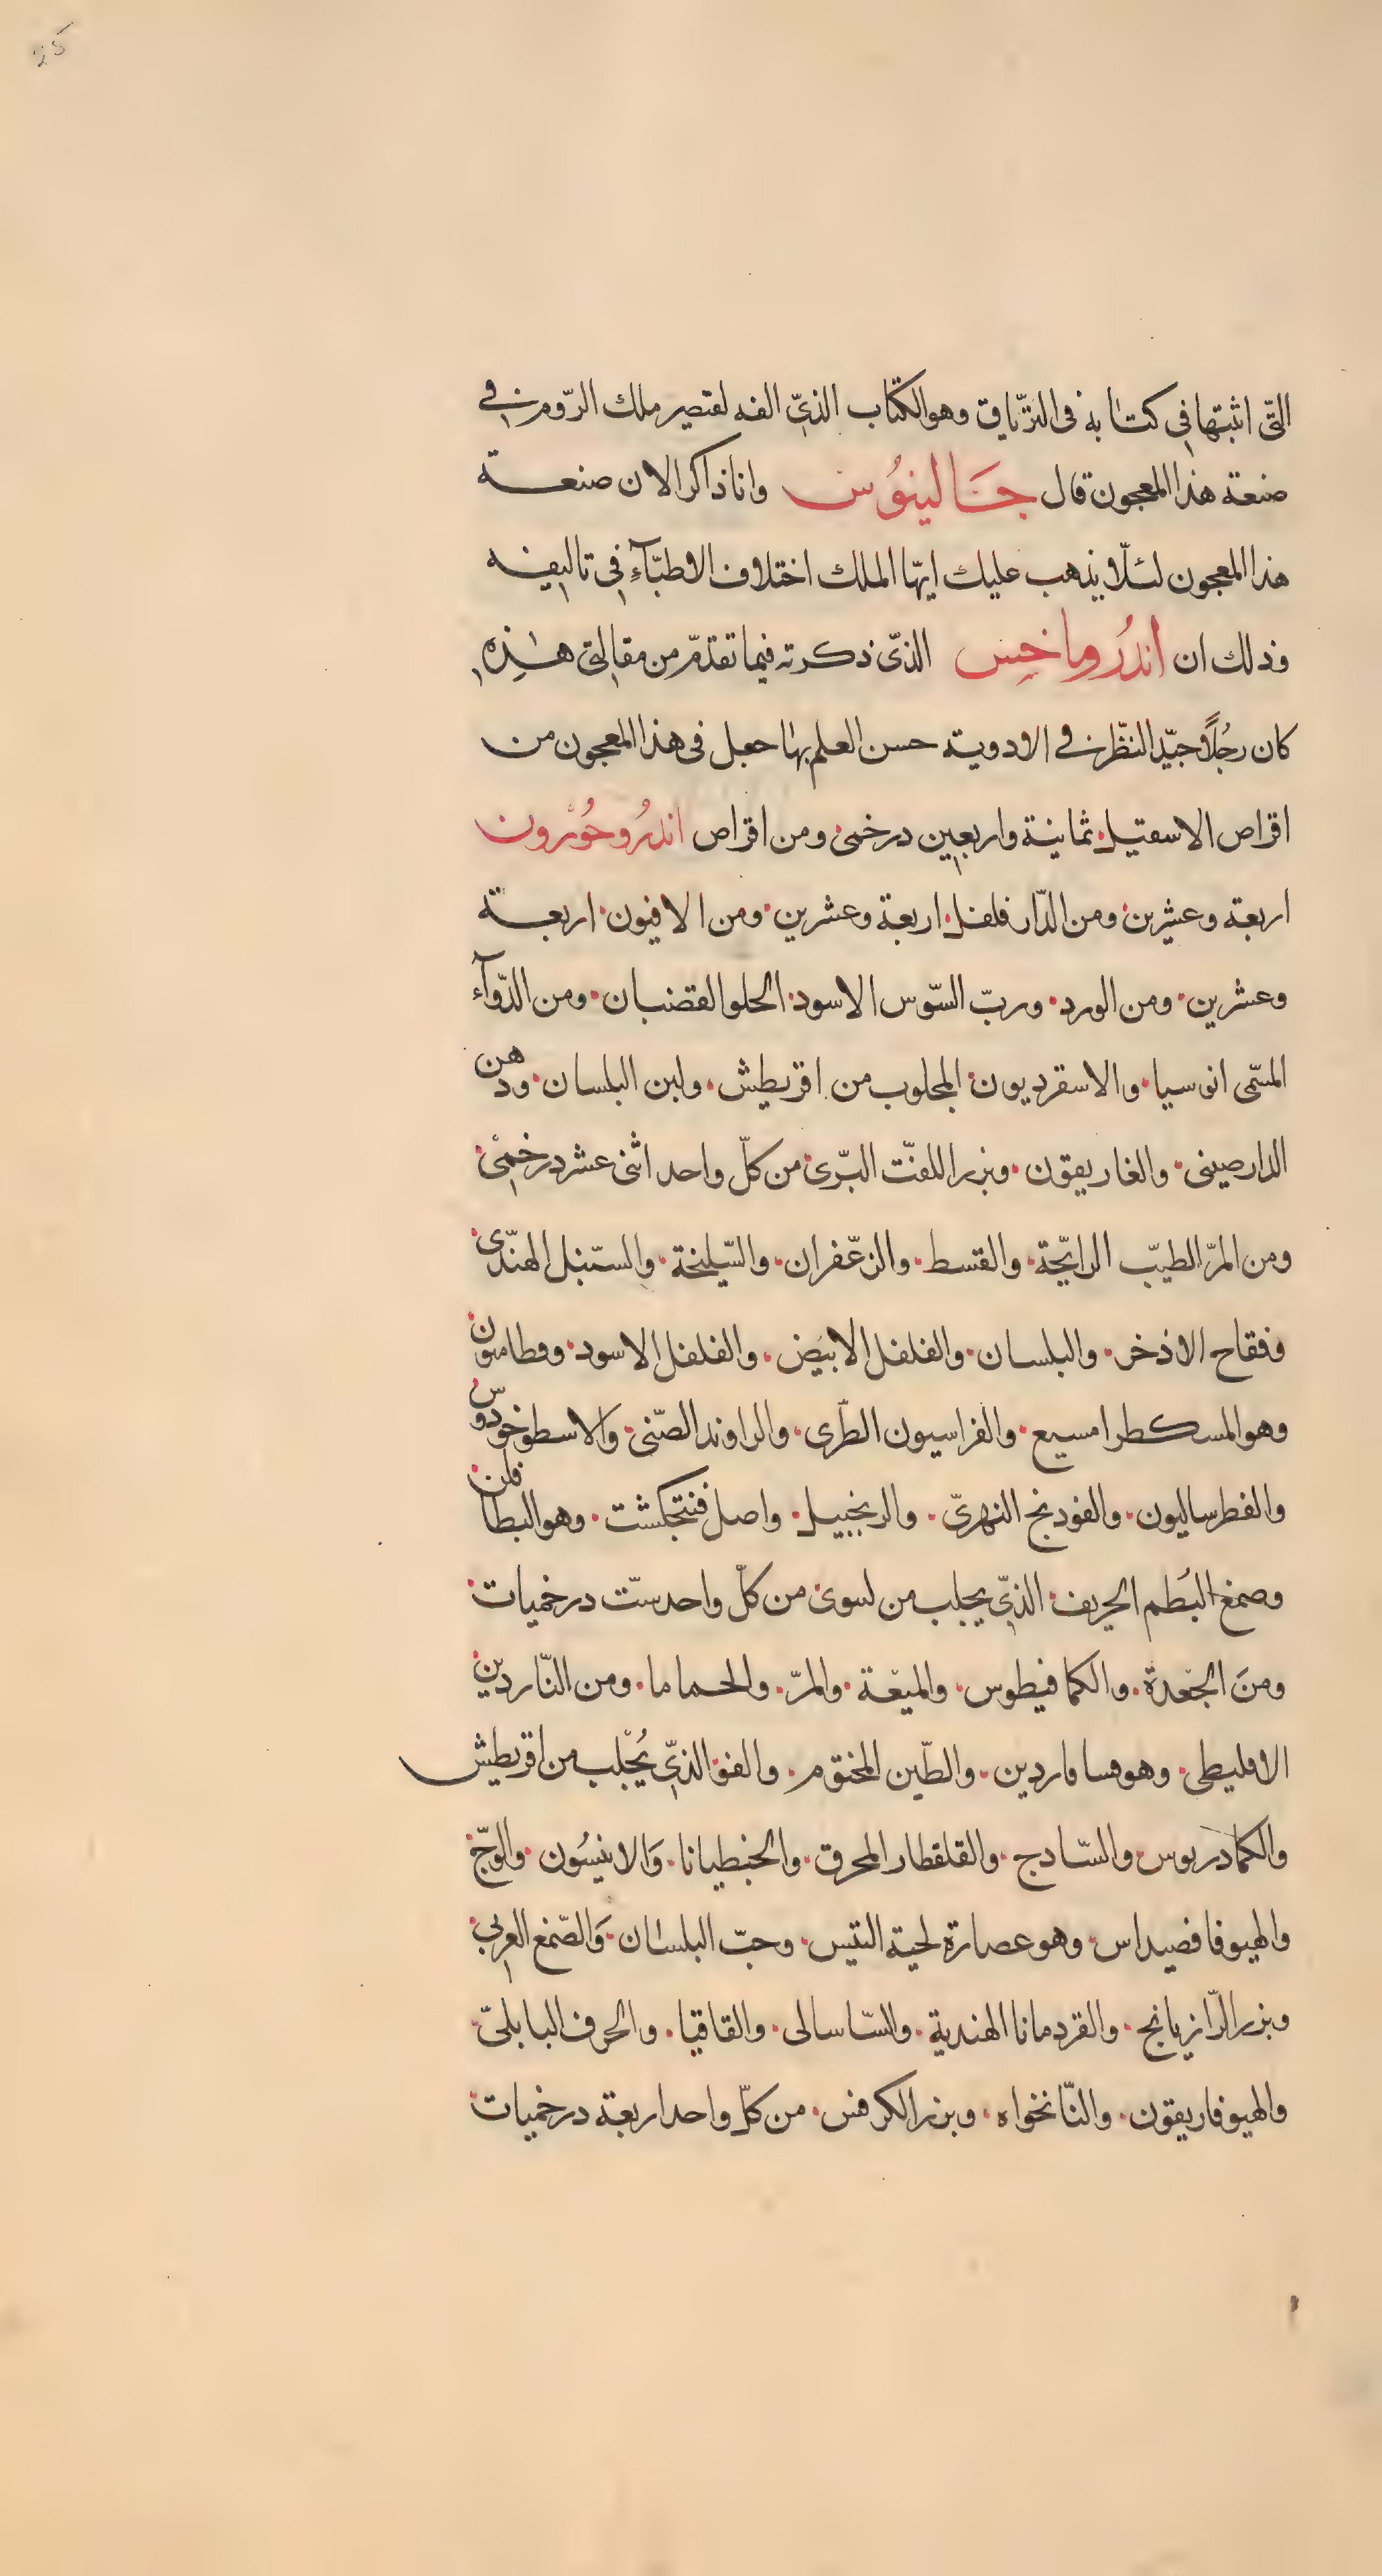 25
التّى اثبتها فى كتابه فى الترّياق وهو الكتاب الذىّ الفه لقتصير ملك الرّوم فى
صنعة هذا المعجون قال جَالينُوس وانا ذاكر الان صنعة
هذا المعجون لئلّا يذهب عليك ايّها الملك اختلاف الاطبّآءِ فى تاليفه
وذلك ان اندُروماخِس الذىّ ذكرته فيما تقدّم من مقالتى هذِه
كان رجُلاً جيّد النظّر فى الادوية حسن العلم بها جعل فى هذا المعجون من
اقراص الاسقيل ثمانية واربعين درخمى ومن اقراص اندرُوخُورون
اربعة وعشرين ومن الدّارفلفل اربعة وعشرين ومن الافيون اربعة
وعشرين ومن الورد وربّ السّوس الاسود الحلو القضبان ومن الدّوآء
المسّمى انوسيا والاسقرديون المجلوب من اقريطيش ولبن البلسان ودهن
الدارصينى والغاريقون وبزر اللفتّ البرّى من كلّ واحد اثنى عشر درخمى
ومن المرّ الطيبّ الرايّحة والقسط والزعّفران والسّليخة والسّنبل الهندّى
وفقاح الاذخر والبلسان والفلفل الابيَض والفلفل الاسود وقطامنون
وهو المسكطرامسيع والفراسيون الطّرى والراوند الصّنى وَالاسطوخودوس
والفطرساليون والفودنج النهرىّ والزنجبيل واصل فنتجكشت وهو البطافلن
وصمغ البُطم الحريف الذىّ يجلب من لسوى من كلّ واحد ستّ درخميات
ومنَ الجعّدة والكمافيطوس والميعّة والمرّ والحماما ومن النّاردين
الاقليطى وهو مساناردين والطّين المختوم والفوّ الذىّ يُجلب من اقريطيش
والكمادريوس والسّادج والقلقطار المحرق والخبطيانا وَالانيسُون والوجّ
والهيوفافصيداس وهو عصارة لحية التيس وحبّ البلسان وَالصّمغ العربى
وبزر الرّازيانج والقردمانا الهندية والسّاسالى والقاقيا والحرف البابلىّ
والهيوفاريقون والنّانخواه وبزر الكرفس من كلّ واحد اربعة درخميات